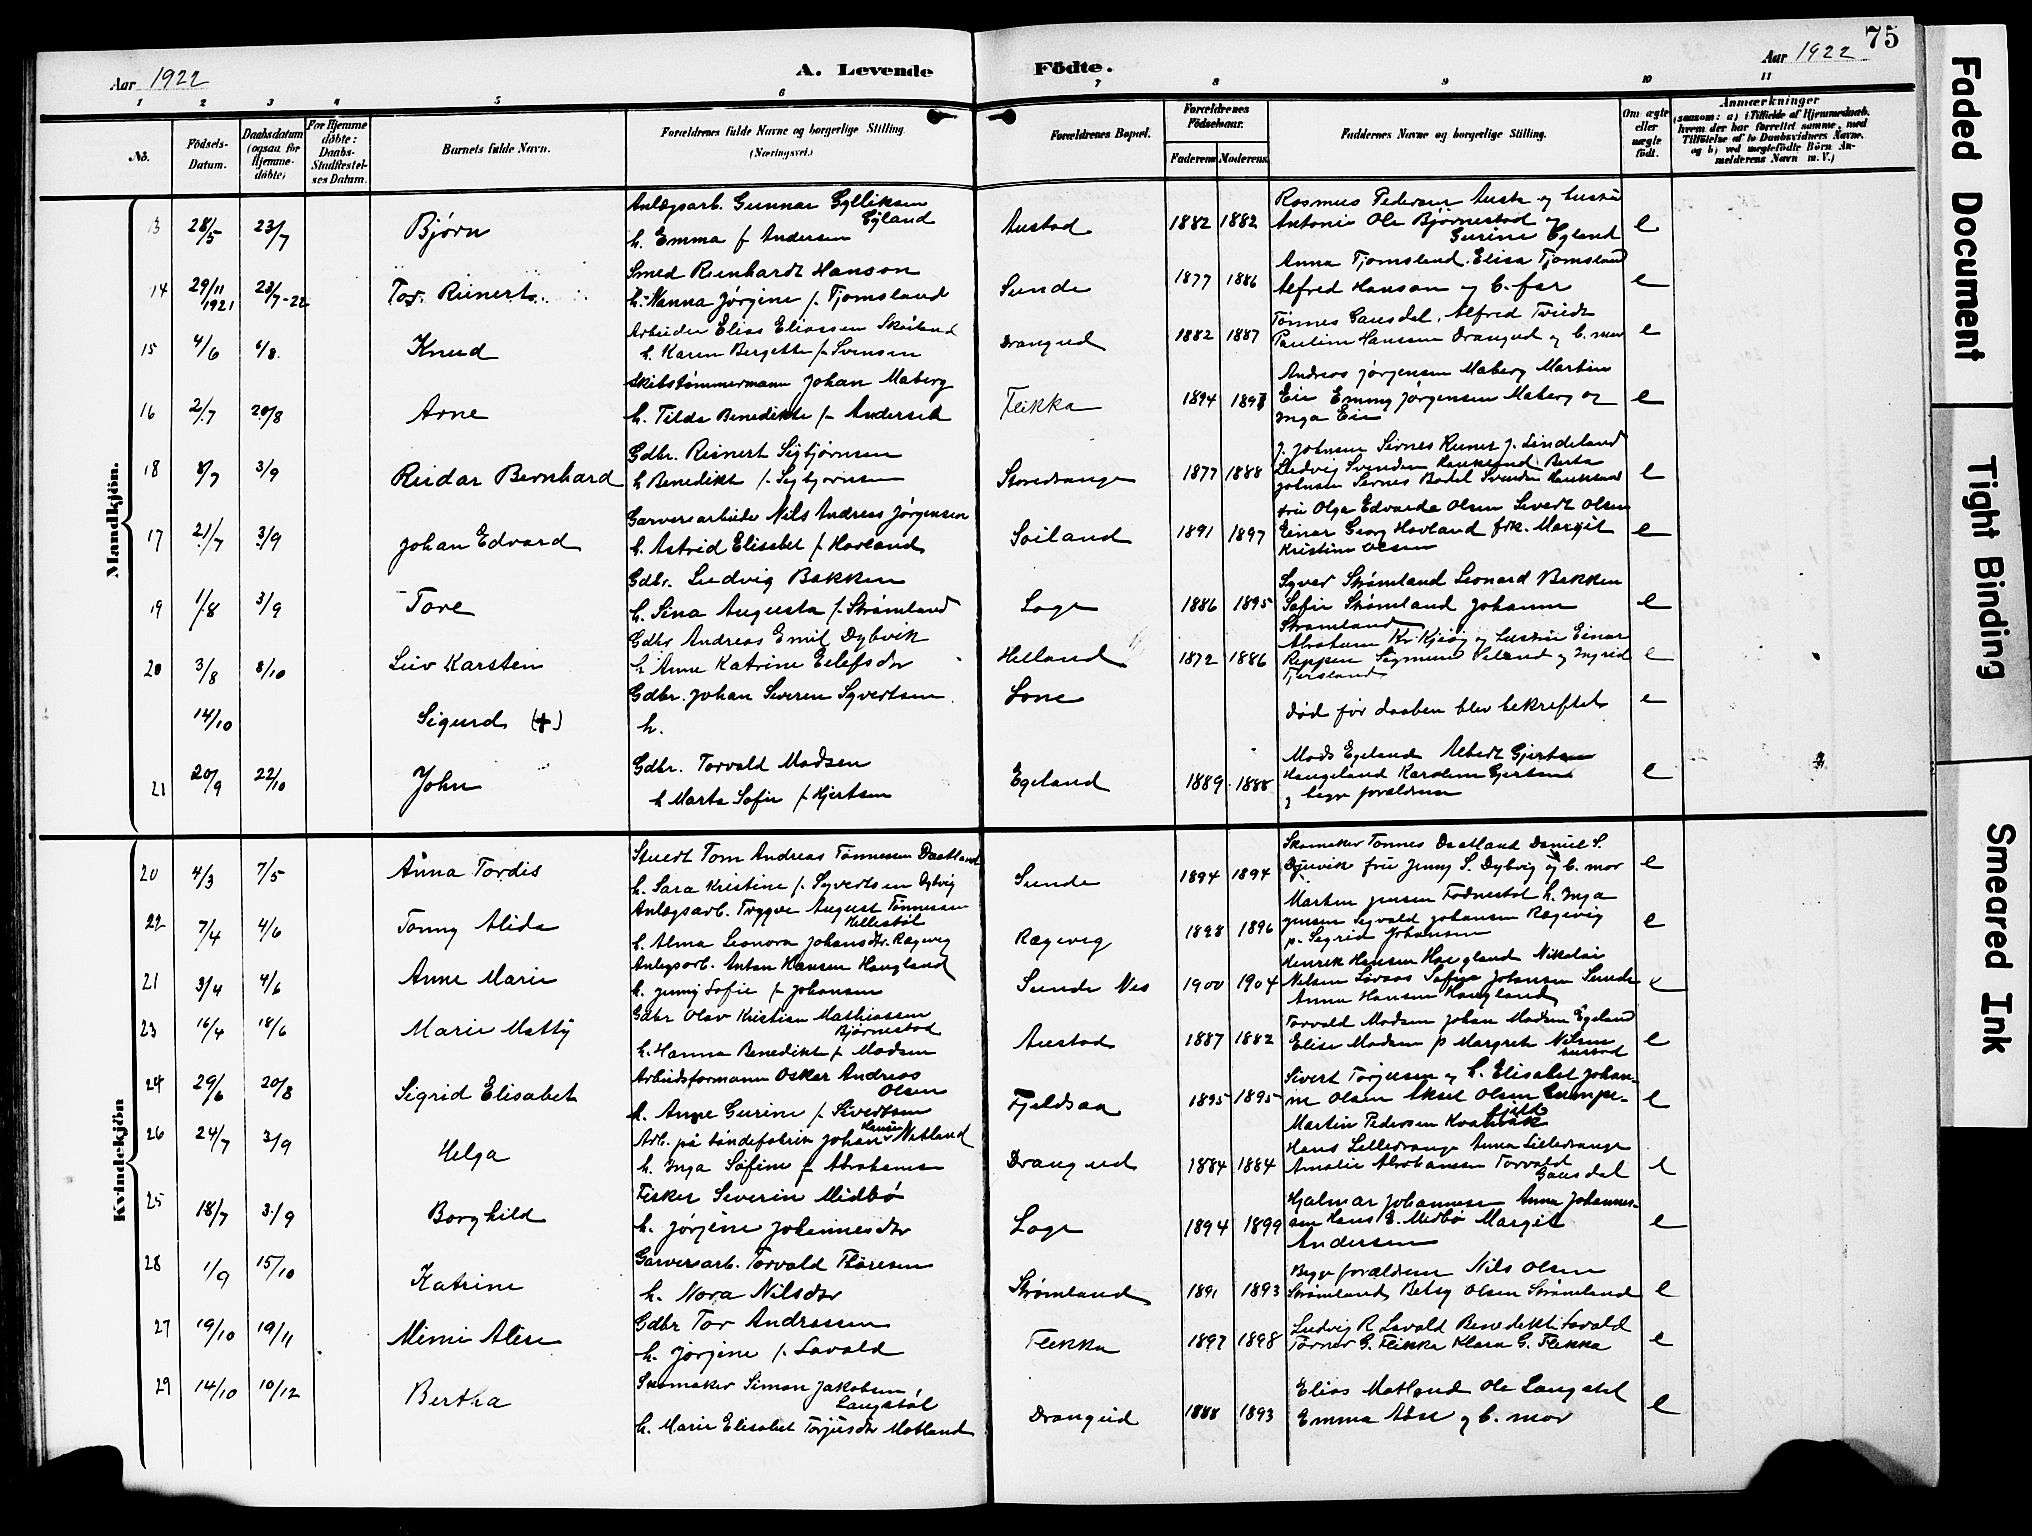 75
Aar 1922
A. Levende Födte.
Aar 1922
1 2 3 4 5 6 7 8 9 10 11
No.
Födsels-Datum.
Daabsdatum (ogsaa for Hjemme-döbte)
For Hjemme döbte: Daabs-Stadfæstel-ses Datum.
Barnets fulde Navn.
Forældrenes fulde Navne og borgerlige Stilling. (Næringsvei.)
Forældrenes Bopæl.
Forældrenes Födselsaar.
Faderens Moderens
Faddernes Navne og borgerlige Stilling.
Om ægte eller uægte födt.
Anmærkninger (saasom: a) i Tilfælde af Hjemmedaab, hvem der har forrettet samme, med Tilföielse af to Daabsvidners Navne, og b) ved uægtefödte Börn An-melderens Navn m. V.)
Mandkjön.
13 28/5 23/7 Bjørn
Anlægsarb. Gunnar Gylliksen Eyland
h. Emma f Andersen
Austad 1882 1882
Rasmus Pedersen Austa og hustru
Antonie Ole Bjørnestad og
Gurine Eyland
e
14 29/11 1921 23/7-22 Tor. Reinert
Smed Reinhardt Hanson
h. Nanna Jørgine f. Tjomsland
Sunde 1877 1886
Anna Tjomsland. Elisa Tjomsland
Alfred Hanson og b. far
e
15 4/6 6/8 Knud
Arbeider Elias Eliassen Skoiland
h. Karen Bergette f. Svensen
Drangeid 1882 1887
Tønnes Gausdal. Alfred Tveide
Pauline Hansen Drangeid og b. mor
e
16 2/7 20/8 Arne
Skibstømmermann Johan Maberg
h. Tilda Benedikte f. Andersen
Flikka 1894
Andreas Jørgensen Maberg Martin
Eie Emmy Jørgensen Maberg og
Inga Eie
e
18 8/7 3/9 Reidar Bernhard
Gdbr. Reinert Sigbjørnsen
h Benedikte f. Sigbjørnsen
Storedrange 1877 1888
J. Johnsen Sirnes J. Lindeland
Ludvig Svendsen Berta
Johnsen Sirnes Bodil Svendsen
e
17 21/7 3/9 Johan Edvard
Garveriarbeider Nils Andreas Jørgensen
h. Astrid Elisabet f. Hovland
Loiland 1891 1897
fru Olga Edvarda Olsen Sevedt Olsen
Einar Georg Hovland frk. Margit
Kristine Olsen
e
19 1/8 3/9 Tore
Gdbr. Ludvig Bakken
h. Sina Augusta f. Strømland
Loge 1886 1895
Syver Strømland Leonard Bakken
Sofie Strømland Johanne
Strømland
e
20 3/8 8/10 Leiv Karsten
Gdbr Andreas Emil Dybvik
h Anne Katrine Eilefsdr
Helland 1872 1886
Abraham Kr. og hustru Einar
Reppen Sigmund og Ingrid
e
14/10 Sigurd (+)
Gdbr. Johan Severin Syvertsen
h.
Lone
død før daaben blev bekreftet
e
21 20/9 22/10 John
Gdbr. Torvald Madsen
h Marta Sofie f Hjertsen
Egeland 1889 1888
Mads Egeland Albert Gjertsen
Haugeland Karoline Gjertsen
og begge forældrene
e
Kvindekjön
20 4/3 7/5 Anna Tordis
Tom Andreas Tønnessen Daatland
h. Sara Kristine f. Syvertsen Dybvig
Sunde 1894 1894
Skomaker Tønnes Daatland Daniel S.
Djuvik frue Jenny S. Dybvig og b. mor
e
22 7/4 4/6 Tonny Alida
Anlægsarb. Trygve August Tønnessen Hellestøl
h. Alma Leonora Johansdtr. Rægevig
Rægevig 1898 1896
Marten Jensen Fodnestøl h. Inga
Jensen Sigvald Johansen Rægevig
p. Sigrid Johansen
e
21 3/4 4/6 Anne Marie
Anlegsarb. Anton Hansen Haugland
h. Jenny Sofie f. Johansen
Sunde Nes 1900 1904
Henrik Hansen Haugland Nikolai
Nilsen Sofie Johansen Sunde
Anna Hansen Haugland
e
23 16/4 18/6 Marie Matty
Gdbr Olav Kristian Mathiassen Bjørnestad
h. Hanna Benedikte f Madsen
Austad 1887 1882
Torvald Madsen Johan Madsen Egeland
Elise Madsen p Margrete Nilsen
Austad
e
24 29/6 20/8 Sigrid Elisabet
Arbeidsformann Oskar Andreas Olsen
h. Anne Gurine f. Sivertsen
Fjeldsaa 1895 1895
Sivert Torjussen og h. Elisabet Johan-
ne Olsen Aksel Olsen
Martin Pedersen
e
26 24/7 3/9 Helga
Arb. på tøndefabrik Johan Hansen Natland
h. Inga Sofine f Abrahamsen
Drangeid 1884 1884
Hans Lilledrange Anna Lilledrange
Amalie Abrahamsen Torvald
Gausdal
e
25 18/7 3/9 Borghild
Fisker Severin Midbø
h. Jørgine Johannesdtr
Loge 1894 1899
Hjalmar Johannessen Anna Johannes-
sen Hans E. Midbø Margit
Andersen
e
28 1/9 15/10 Katrine
Garveriarb. Torvald Thoresen
h. Nora Nilsdtr
Strømland 1891 1893
Begge forældrene Nils Olsen
Strømland Betsy Olsen Strømland
e
27 19/10 19/11 Mimi Alise
Gdbr Tor Andreassen
h. Jørgine f. Lavold
Flikka 1897 1898
Ludvig R Lavold Benedikte Lavold
Tørner G. Flikka Klara G. Flikka
e
29 14/10 10/12 Bertha
Skomaker Simon Jakobsen Langstøl
h. Marie Elisabet Torjusdtr Motland
Drangeid 1888 1893
Elias Motland Ole Langstøl
Emma Aase og b. mor
e
Faded Document
Tight Binding
Smeared Ink